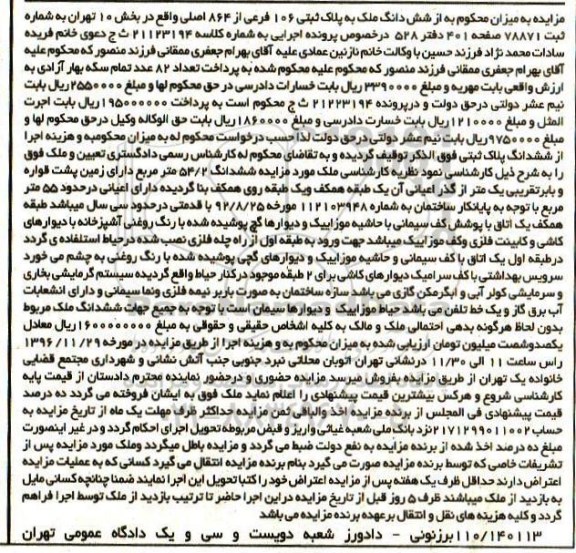 مزایده به میزان محکوم به از شش دانگ ملک به پلاک ثبتی ۱۰۶ فرعی از ۸۶۴ اصلی واقع در بخش ۱۰ تهران به شماره
ثبت ۷۸۸۷۱ صفحه ۴۰۱ دفتر ۵۲۸ درخصوص پرونده اجرایی به شماره کلاسه ۲۱۱۲۳۱۹۴ ث ج دعوی خانم فریده
سادات محمد نژاد فرزند حسین با وکالت خانم نازنین عمادی علیه آقای بهرام جعفری ممقانی فرزند منصور که محکوم علیه
آقای بهرام جعفری ممقانی فرزند منصور که محکوم علیه محکوم شده به پرداخت تعداد ۸۲ عدد تمام سکه بهار آزادی به
ارزش واقعی بابت مهریه و مبلغ ۳۳۹۰۰۰۰ ریال بابت خسارات دادرسی در حق محکوم لها و مبلغ ۲۵۵۰۰۰۰ ریال بابت
نیم عشر دولتی درحق دولت و درپرونده ۲۱۲۲۳۱۹۴ ث ج محکوم است به پرداخت ۱۹۵۰۰۰۰۰۰ ریال بابت اجرت
المثل و مبلغ ۱۲۱۰۰۰۰ ریال بابت خسارت دادرسی و مبلغ ۱۸۶۰۰۰۰ ریال بابت حق الوکاله وکیل درحق محکوم لها و
مبلغ ۹۷۵۰۰۰۰ ریال بابت نیم عشر دولتی درحق دولت لذا حسب درخواست محکوم له به میزان محکومبه و هزینه اجرا
از ششدانگ پلاک ثبتی فوق الذکر توقیف گردیده و به تقاضای محکوم له کارشناس رسمی دادگستری تعیین و ملک فوق
را به شرح ذیل کارشناسی نمود نظریه کارشناسی ملک مورد مزایده ششدانگ ۵۴/۲ متر مربع دارای زمین پشت قواره
و بابر تقریبی یک متر از گذر اعیانی آن یک طبقه همکف ویک طبقه روی همکف بنا گردیده دارای اعیانی درحدود ۵۵ متر
مربع با توجه به پایانکار ساختمان به شماره ۱۱۲۱۰۳۹۴۸ مورخه ۹۲/۸/۲۵ با قدمتی درحدود سی سال میباشد طبقه
همکف یک اتاق با پوشش کف سیمانی با حاشیه موزاییک و دیوارها گچ پوشیده شده با رنگ روغنی آشپزخانه با دیوارهای
کاشی و کابینت فلزی وکف موزاییک میباشد جهت ورود به طبقه اول از راه چله فلزی نصب شده درحیاط استلفاده ی گردد
درطبقه اول یک اتاق با کف سیمانی و حاشیه موزاییک و دیوارهای گچی پوشیده شده با رنگ روغنی به چشم می خورد
سرویس بهداشتی با کف سرامیک دیوارهای کاشی برای ۲ طبقه موجود درکنار حیاط واقع گردیده سیستم گرمایشی بخاری
و سرمایشی کولر آبی و آبگرمکن گازی می باشد سازه ساختمان به صورت باربر نیمه فلزی ونما سیمانی و دارای انشعابات
آب برق گاز و یک خط تلفن می باشد حیاط موزاییک و دیوارها سیمان است با توجه به جمیع جهات ششدانگ ملک مربوط
بدون لحاظ هرگونه بدهی احتمالی ملک و مالک به کلیه اشخاص حقیقی و حقوقی به مبلغ ۱۶۰۰۰۰۰۰۰۰ ریال معادل
یکصدوشصت میلیون تومان ارزیابی شده به میزان محکوم به و هزینه اجرا از طریق مزایده در مورخه ۱۳۹۶/۱۱/۲۹
راس ساعت ۱۱ الی ۱۱/۳۰ در نشانی تهران اتوبان محلاتی نبرد جنوبی جنب آتش نشانی و شهرداری مجتمع قضایی
خانواده یک تهران از طریق مزایده بفروش میرسد مزایده حضوری و درحضور نماینده محترم دادستان از قیمت پایه
کارشناسی شروع و هرکس بیشترین قیمت پیشنهادی را اعلام نماید ملک فوق به ایشان فروخته می گردد ده درصد
قیمت پیشنهادی فی المجلس از برنده مزایده اخذ والباقی ثمن مزایده حداکثر ظرف مهلت یک ماه از تاریخ مزایده به
حساب ۲۱۷۱۲۹۹۰۱۱۰۰۲ نزد بانک ملی شعبه غیاثی واریز و قبض مربوطه تحویل اجرای احکام گردد و در غیر اینصورت
مبلغ ده درصد اخذ شده از برنده مزایده به نفع دولت ضبط می گردد و مزایده باطل میگردد وملک مورد مزایده پس از
تشریفات خاصی که توسط برنده مزایده صورت می گیرد بنام برنده مزایده انتقال می گیرد کسانی که به عملیات مزایده
اعتراض دارند حداقل ظرف یک هفته پس از مزایده اعتراض خود را کتبا تحویل این اجرا نمایند ضمنا چنانچه کسانی مایل
به بازدید از ملک میباشند ظرف ۵ روز قبل از تاریخ مزایده دراین اجرا حاضر تا ترتیب بازدید از ملک توسط اجرا فراهم
گردد و کلیه هزینه های نقل و انتقال برعهده برنده مزایده می باشد
۱۱۰/۱۴۰۱۱۳ برزنونی - دادورز شعبه دویست و سی و یک دادگاه عمومی تهران